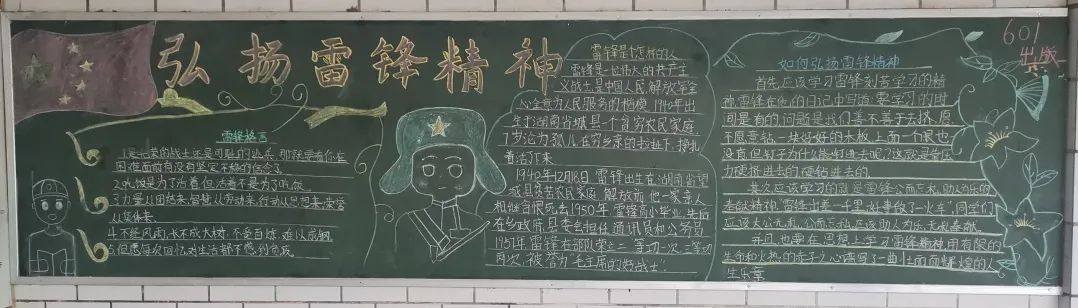 弘扬雷锋精神
601
出版
雷锋格言
1.是光荣的战士还是可耻的逃兵,那就要看你在
困难面前有没有坚定不移的信念了
2.吃饭是为了活着,但活着不是为了吃饭
3.力量从团结来,智慧从劳动来,行动从思想来,荣誉
从集体来
4.不经风雨,长不成大树,不受百炼,难以成钢
5.但愿每次回忆,对生活都不感到负疚
雷锋是个怎样的人
雷锋是一位伟大的共产主
义战士,是中国人民解放军全
心全意为人民服务的楷模,1940年出
生于湖南省城县一个贫穷农民家庭
7岁沦为孤儿,在穷乡亲的拉扯下,挣扎
着活下来
1940年12月18日,雷锋出生在湖南省望
城县贫苦农民家庭,解放前他一家亲人
相继含恨死去,1950年雷锋高小毕业,先后
在乡政府,县委担任通讯员和公务员
1957年雷锋在部队荣立二等功一次,三等功
两次,被誉为"毛主席的好战士"
如何弘扬雷锋精神
首先,应该学习雷锋刻苦学习的精
神,雷锋在他的日记中写道:要学习的时
间是有的,问题是我们善不善于去挤,愿
不愿意钻,一块好好的木板,上面一个眼也
没有,但钉子为什么能钉进去呢?这就是靠压
力硬挤进去的,硬钻进去的
其次,应该学习的就是雷锋公而忘私,助人为乐的
奉献精神,"雷锋出差一千里,好事做了一火车"同学们
应该大公无私,公而忘私,应该助人为乐,无私奉献
并且,也要在思想上学习雷锋精神,用有限的
生命和火热的赤子之心谱写了一曲壮丽而辉煌的人
生乐章